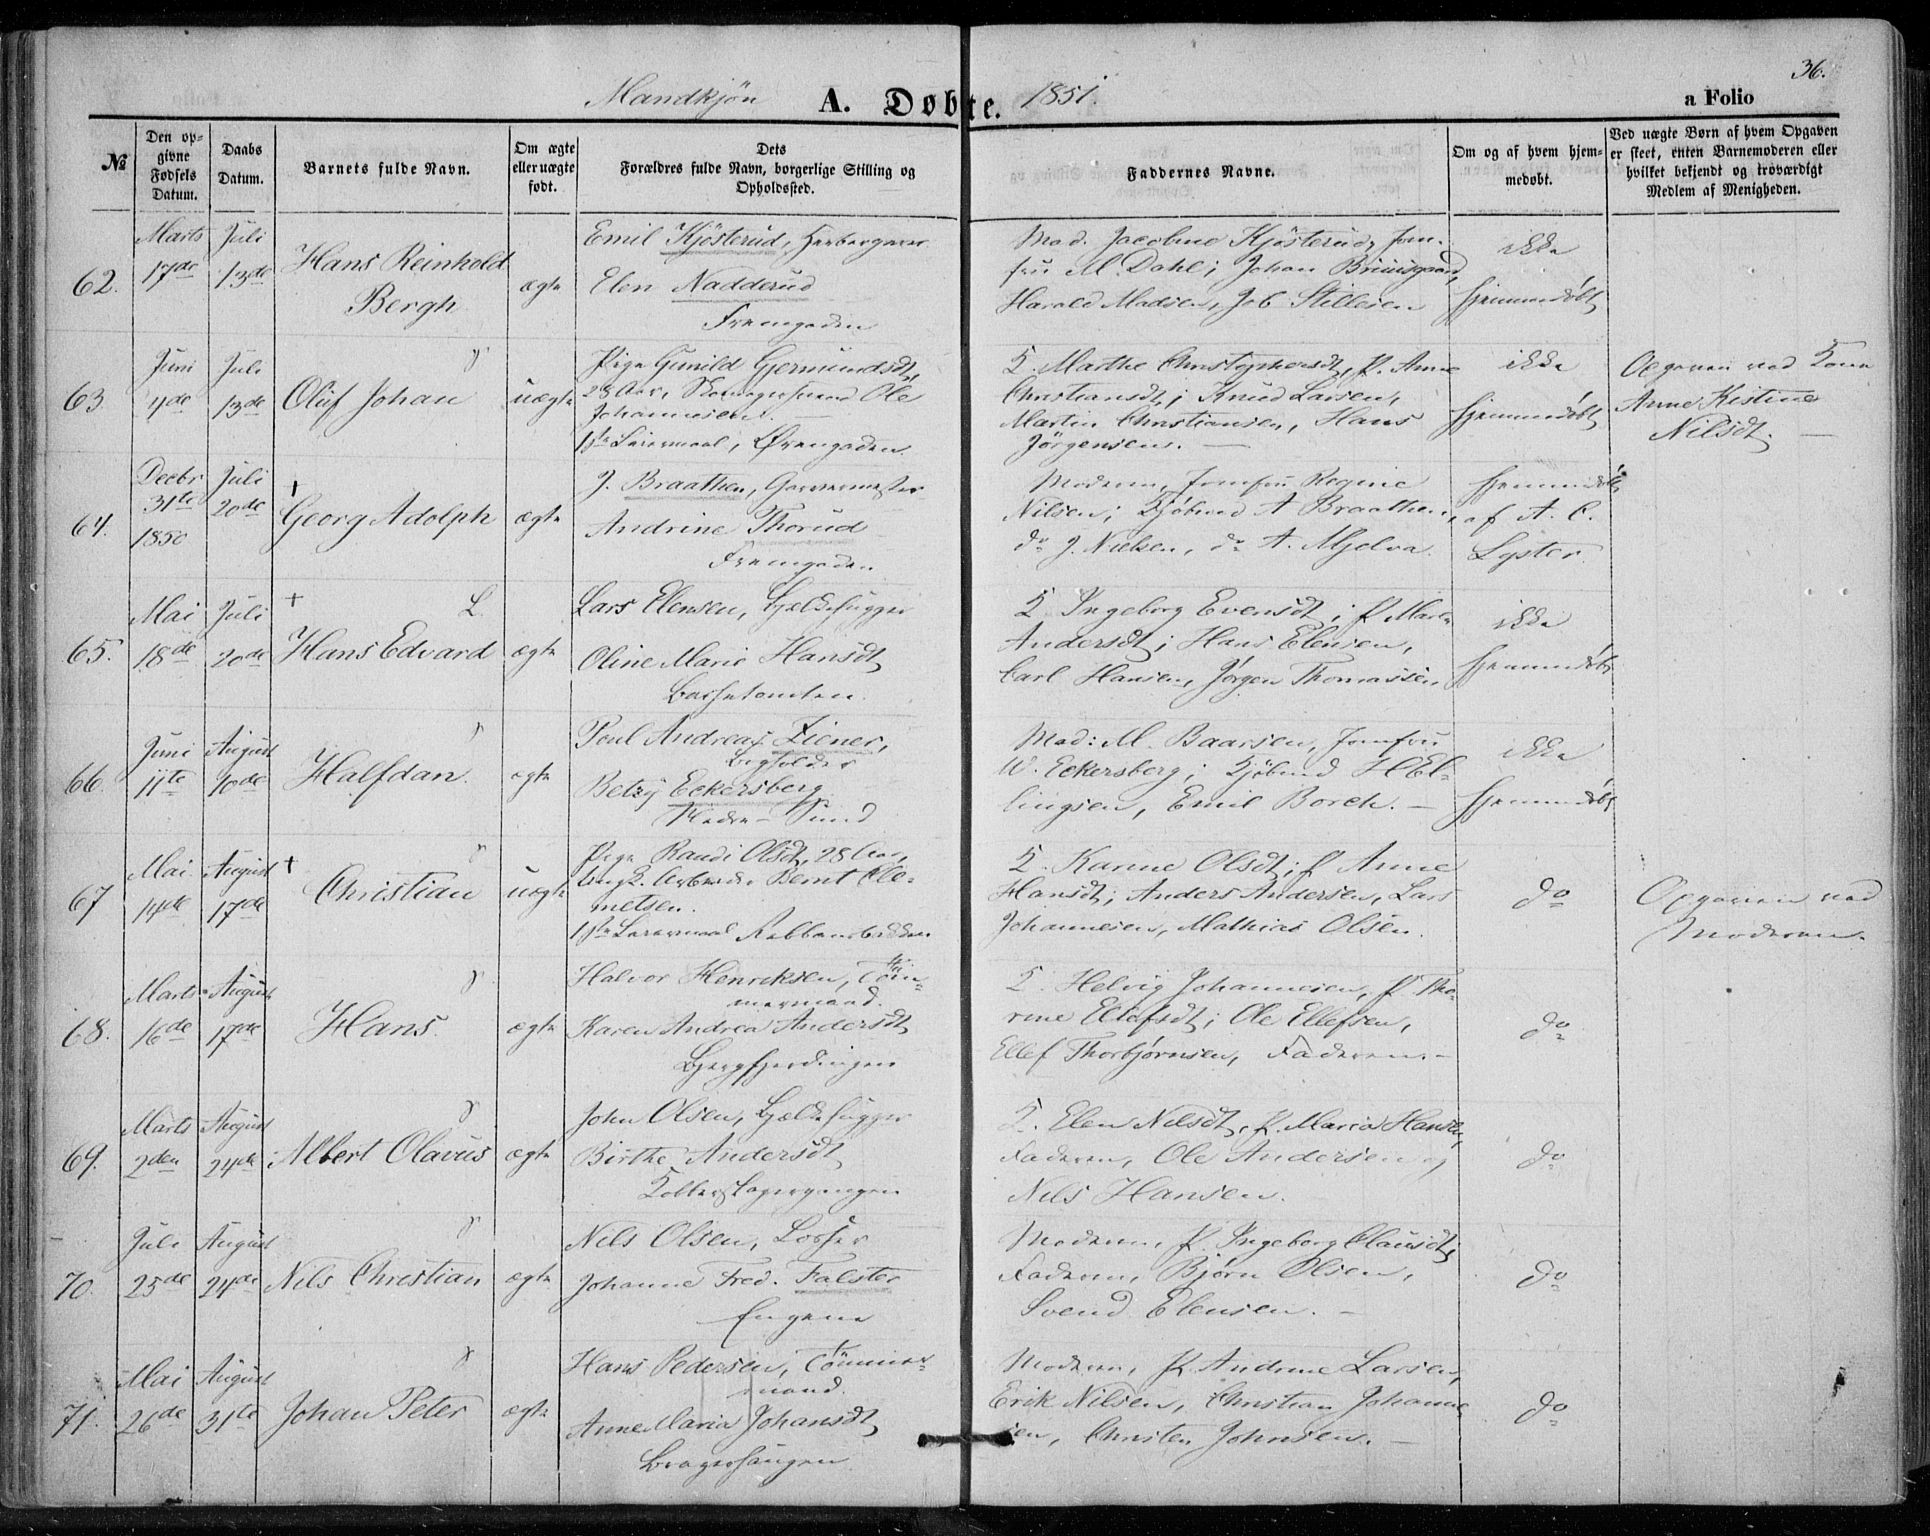 36.
Mandkjön A. Døbte. 1851. a Folio
№ Den opgivne Fødsels Datum. Daabs Datum. Barnets fulde Navn. Om ægte eller uægte født. Dets Forældres fulde Navn, borgerlige Stilling og Opholdssted. Faddernes Navne. Om og af hvem hjemmedøbt. Ved uægte Børn af hvem Opgaven er skeet, enten Barnemoderen eller hvilket bekjendt og troværdigt Medlem af Menigheden.
62. Marts 17de Juli 13de Hans Reinhold Bergh ægte
Emil Kjösterud,
Elen Nadderud
Mad. Jacobine Kjösterud, Jom-
fru M. Dahl; Johan
Harald Madsen, Job Stillesen
ikke
hjemmedøbt
63 Juni 4de Juli 13de Oluf Johan uægte
Pige Gunild Gjermundsdt,
Ole
Johannesen.
1ste Leiermaal, Ørengaden
K. Marthe Christophersdt, P. Anne
Christiansdt; Knud Larsen,
Martin Christiansen, Hans
Jörgensen. —
ikke
hjemmedøbt
Opgaven ved Kone
Anne Kistine
Nilsdt. —
64. Decbr 31te 1850 Juli 20de + Georg Adolph ægte
J. Braathen, Garvermester
Andrine Thorud
Moderen, Jomfru Regine
Nilsen; Kjöbmd A Braathen,
do J. Nielsen, do A. Mjelva.
hjemmedøbt
af A. C.
Lyster.
65. Mai 18de Juli 20de + L. Hans Edvard ægte
Lars Elensen,
Oline Marie Hansdt
K. Ingeborg Evensdt; P. Maren
Andersdt; Hans Elensen,
Carl Hansen, Jörgen Thomassen
ikke
hjemmedøbt
66. Juni 11te August 10de Halfdan. ægte
Poul Andreas Ziener,
Betzy Eckersberg
Mad: M. Baarsen, Jomfru
W. Eckersberg; Kjöbmd H El-
lingsen, Emil Borch. —
ikke
hjemmedøbt
67 Mai 14de August 17de + Christian uægte
Pige Randi Olsdt, 28 Aar,
Ungk. Arbeider Bernt Cle-
metsen.
1ste Leiermaal
K. Karine Olsdt; P. Anne
Hansdt; Anders Andersen, Lars
Johannesen, Mathias Olsen.
do
Opgaven ved
Moderen.
68. Marts 16de August 17de Hans. ægte
Halvor Henriksen, Töm-
mermand.
Karen Andrea Andersdt
Bjergfjerdingen
K. Helvig Johannesen, P. Tho-
rine Ellefsdt; Ole Ellefsen,
Ellef Thorbjørnsen, Faderen. —
do
69. Marts 2den August 24de Albert Olavus ægte
John Olsen,
Birthe Andersdt
K. Elen Nilsdt, P. Maria Hansen,
Faderen, Ole Andersen og
Nils Hansen.
do
70. Juli 25de August 24de Nils Christian ægte
Nils Olsen, Losser
Johanne Fred. Falster
Engene
Moderen, P. Ingeborg Clausdt,
Faderen, Bjørn Olsen,
Svend Elensen. —
do
71. Mai 26de August 31te Johan Peter ægte
Hans Pedersen, Tömmer-
mand.
Anne Maria Johansdt
Moderen, P. Andrine Larsen,
Erik Nilsen, Christian Johanne-
sen, Christen Johnsen. —
do